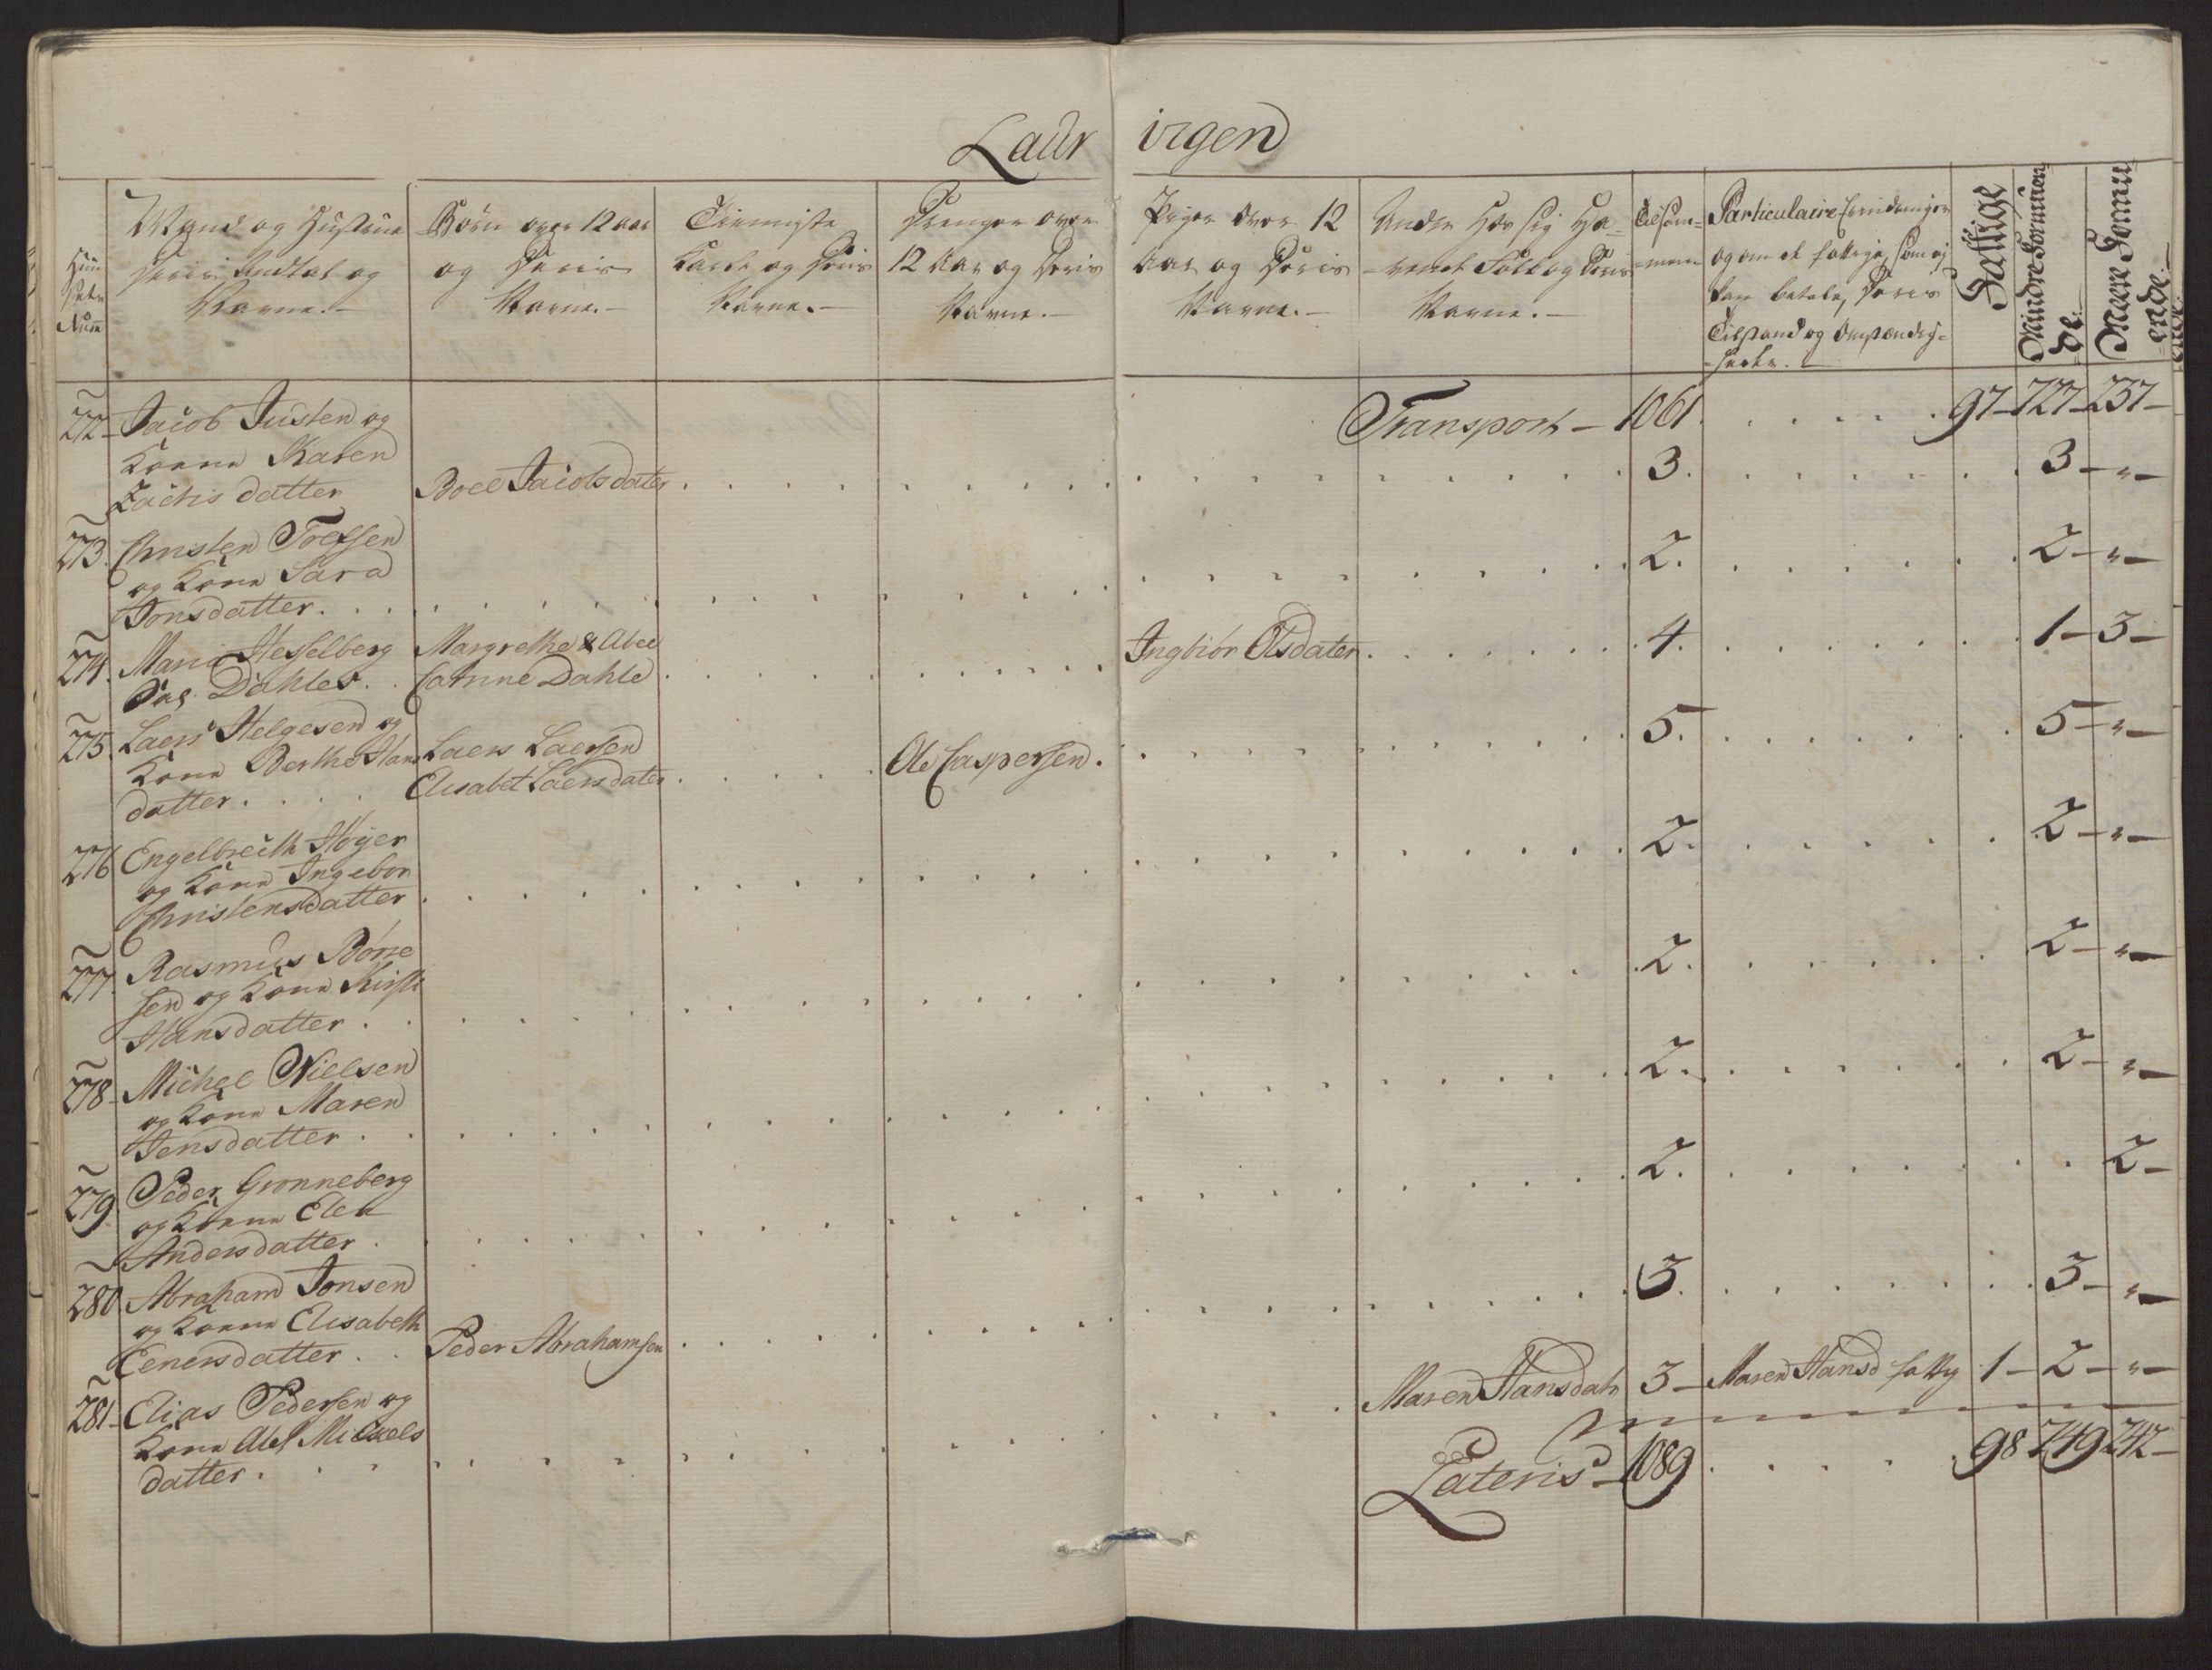 Laur vigen
Mand og Hustrue
Deris Andtal og
Navne.
Børn over 12 aar
og Deris
Navne.
Tienniste
Karle og Deris
Navne.
Drenger over
12 Aar og Deris
Navne.
Piger over 12
Aar og Deris
Navne.
Andre Hos sig Ha-
-vende Folk og Deris
Navne.
Tilsam-
-men
Particulaire Erindringer
og om de fattige, som ej
kan betale, Deris
Tilstand og Omstændig-
-heder.
Fattige
Mindre Formuen-
de.
Meere Formu-
ende.
Transport - 1061 . 97 - 727 - 237 -
272 - Jacob Justen og
Konne Karen
Zachis datter
Boel Jacobsdater
3. 3 - " -
273. Christen Toefsen
og Kone Sara
Jonsdatter.
2. 2 - " -
274. Maria Hesselberg
Sal. Dahles.
Margrethe & Abel
Catrine Dahle
Ingbiør Olsdater
4. 1 - 3 -
275. Laers Helgesen og
Kone Berthe Hans
datter.
Laers Laersen
Elisabet Laersdater
Ole Caspersen.
5. 5 - " -
276 Engelbreith Høyer
og Kone Ingebor
Christensdatter
2. 2 - " -
277. Rasmus Børre
sen og Kone Kirsti
Hansdatter.
2. 2 - " -
278 - Michel Nielsen
og Kone Maren
Jensdatter.
2. 2 - " -
279. Peder Grønneberg
og Konne Elen
Andersdatter.
2. 2 -
280 Abraham Jonsen
og Konne Elisabeth
Eenersdatter.
Peder Abrahamsen
3. 3 - " -
281 - Elias Pedersen og
Kone Abel Michels
datter.
Maren Hansdatr 3 - Maren Hansd fattig 1 - 2 - " -
Lateris - 1089 . 98 749 242 -